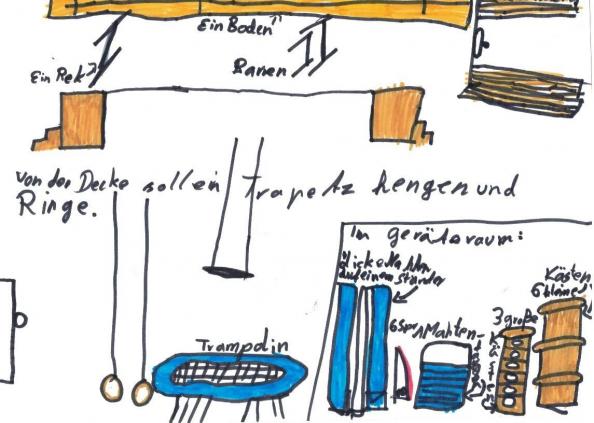 Ein Boden
Ein Rek
Ranen
von der Decke soll ein Trapetz hengen und
Ringe.
Im geräteraum:
dicke Matten
auf einem Ständer
Kästen
6 kleine
3 große
Kästen
6 Spr
Matten-
Trampolin